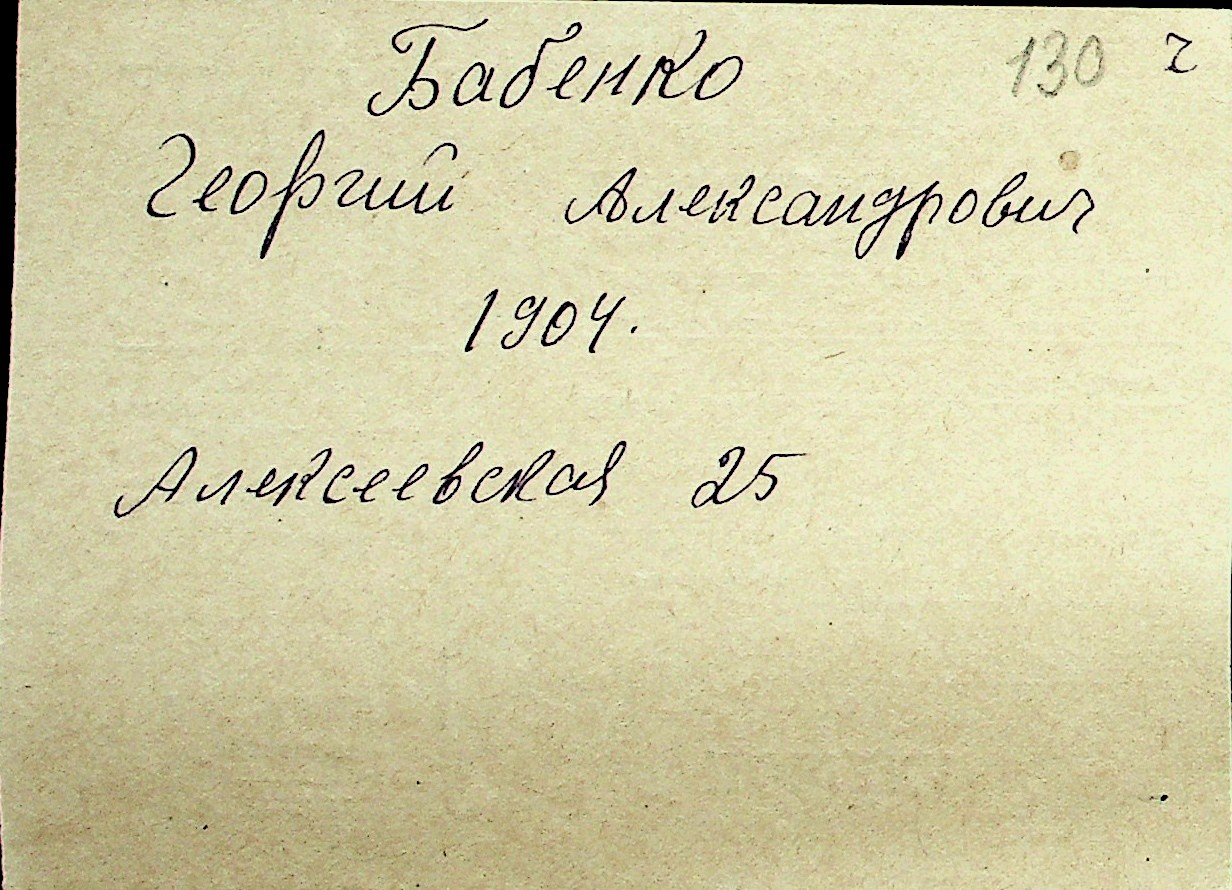 Бабенко 130
Георгий Александрович
1904.
Алексеевская 25